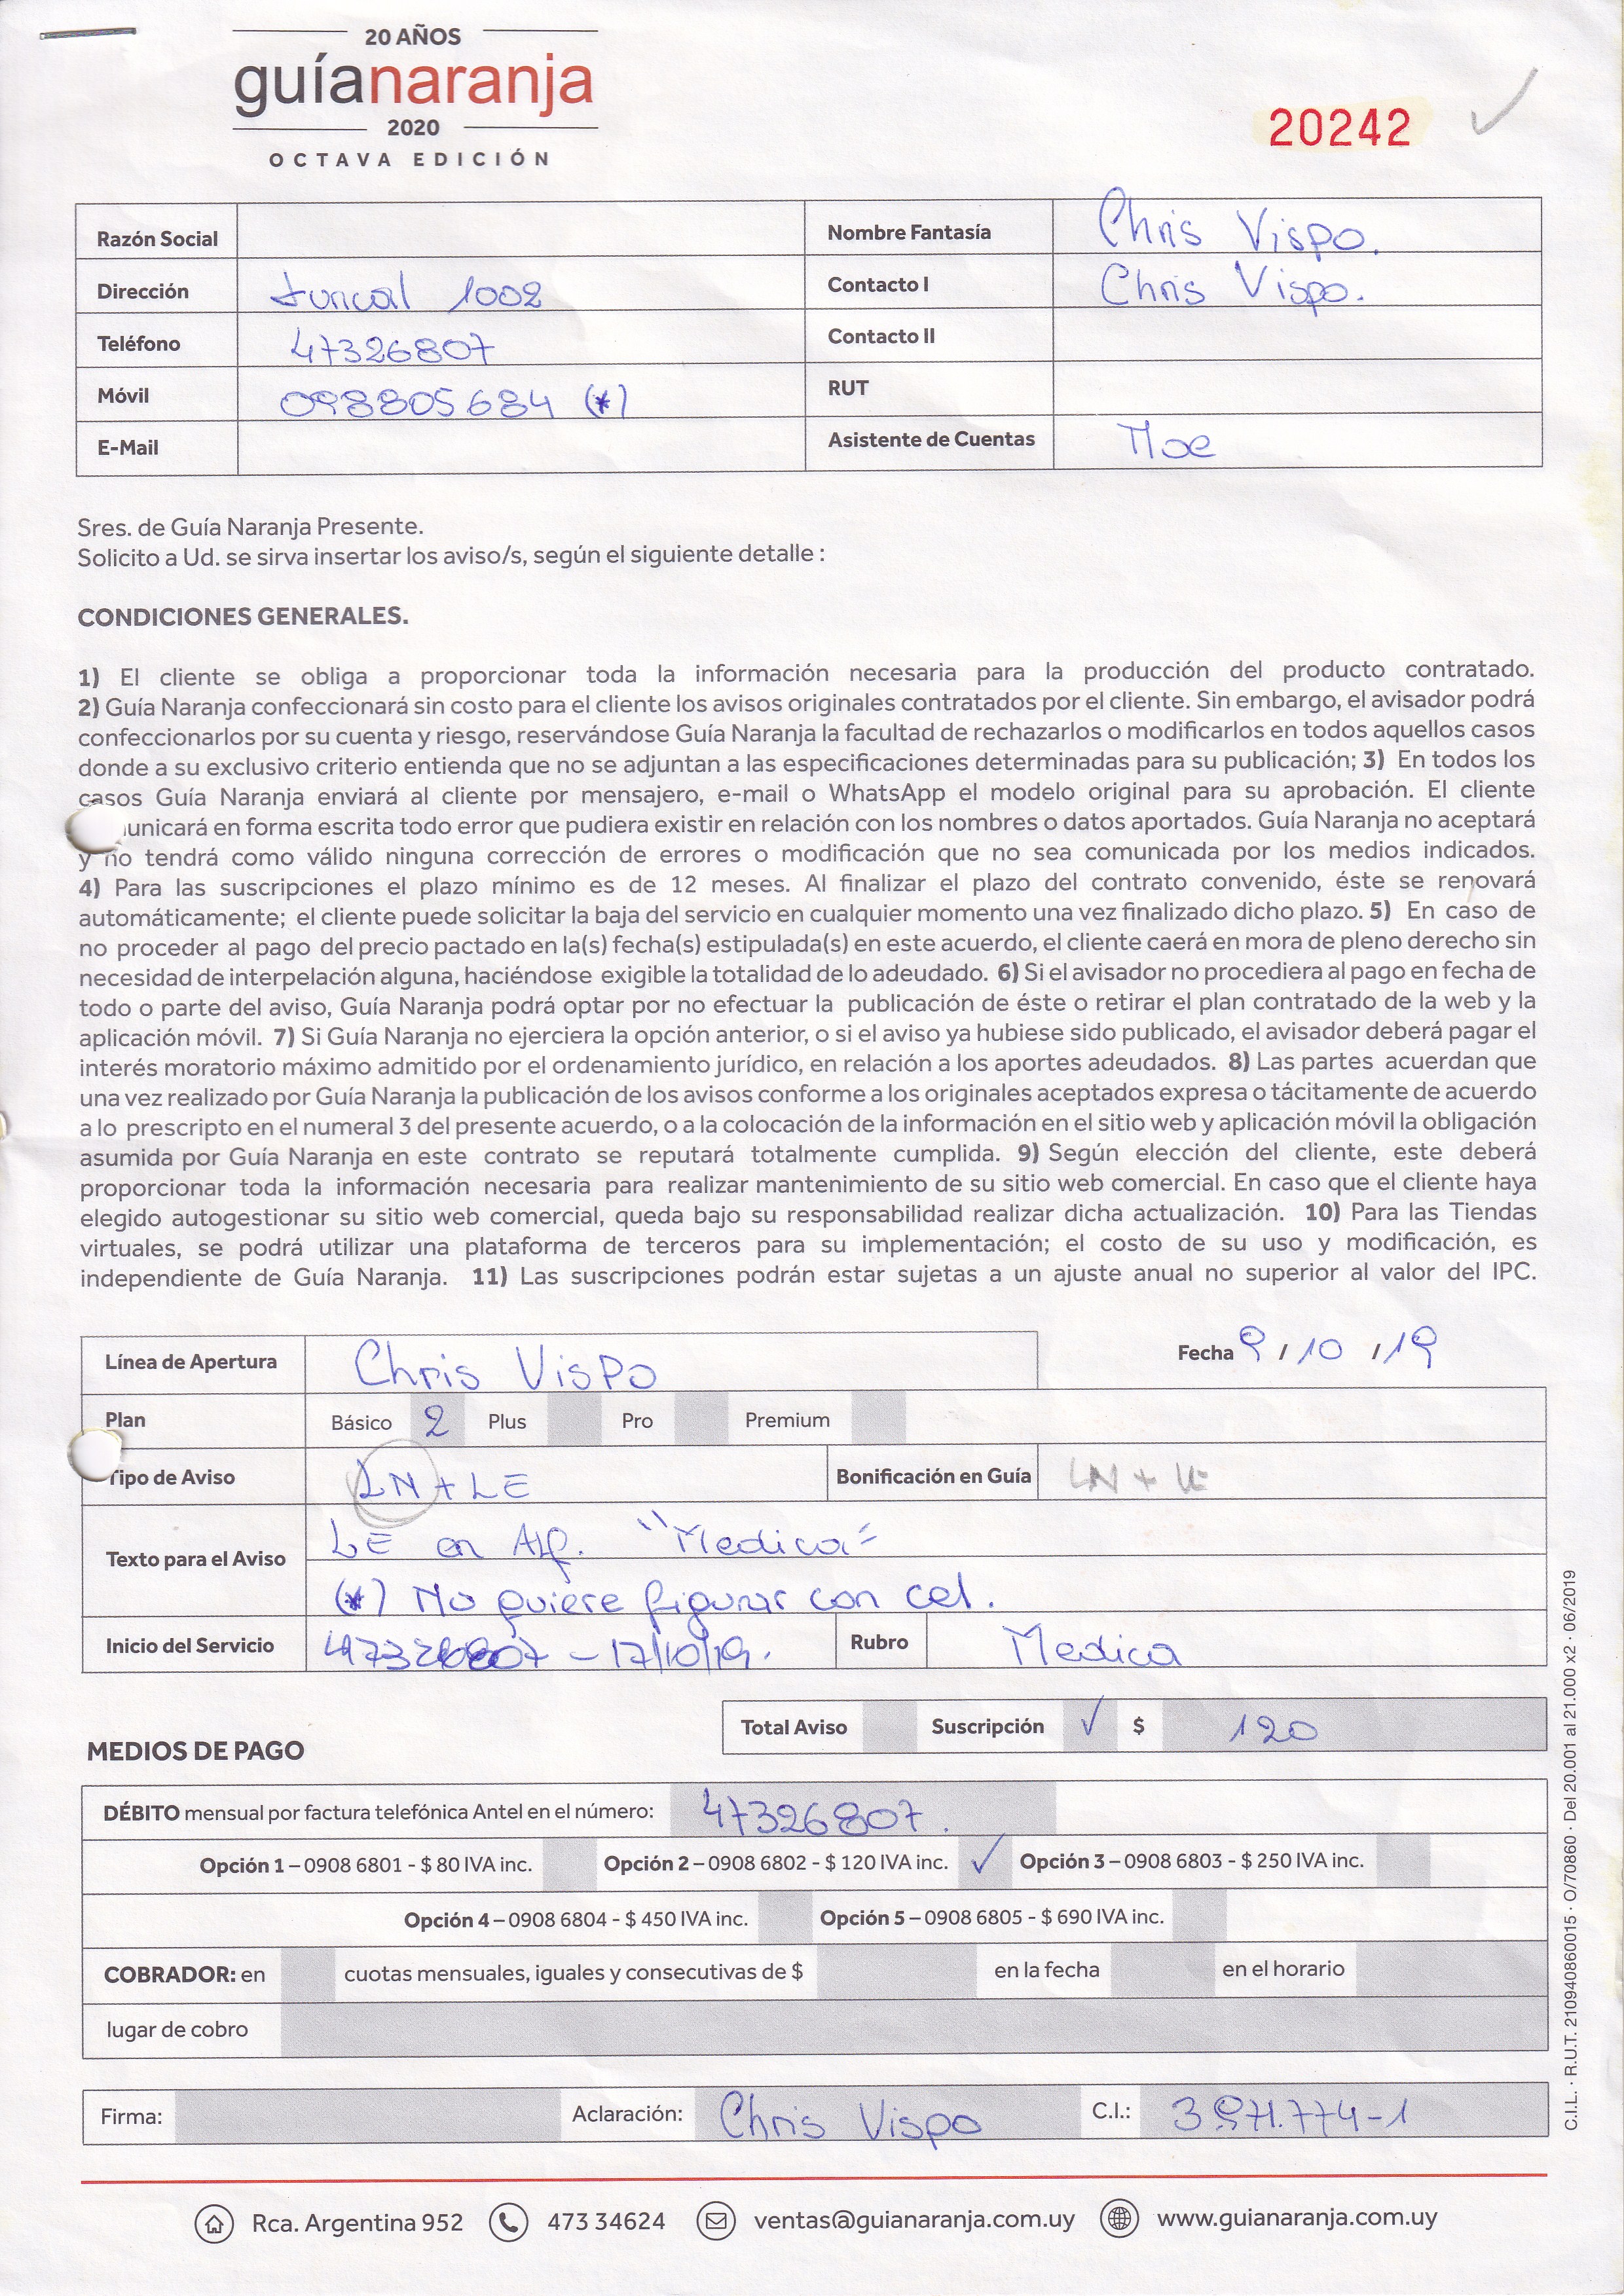 20 AÑOS
guíanaranja
2020
OCTAVA EDICIÓN
20242
Razón Social
Nombre Fantasía Chris Vispo.
Dirección Juncal 1002
Contacto I Chris Vispo.
Teléfono 47326807
Contacto II
Móvil 098805684 (*)
RUT
E-Mail
Asistente de Cuentas Noe
Sres. de Guía Naranja Presente.
Solicito a Ud. se sirva insertar los aviso/s, según el siguiente detalle :
CONDICIONES GENERALES.
1) El cliente se obliga a proporcionar toda la información necesaria para la producción del producto contratado.
2) Guía Naranja confeccionará sin costo para el cliente los avisos originales contratados por el cliente. Sin embargo, el avisador podrá
confeccionarlos por su cuenta y riesgo, reservándose Guía Naranja la facultad de rechazarlos o modificarlos en todos aquellos casos
donde a su exclusivo criterio entienda que no se adjuntan a las especificaciones determinadas para su publicación; 3) En todos los
casos Guía Naranja enviará al cliente por mensajero, e-mail o WhatsApp el modelo original para su aprobación. El cliente
unicará en forma escrita todo error que pudiera existir en relación con los nombres o datos aportados. Guía Naranja no aceptará
y no tendrá como válido ninguna corrección de errores o modificación que no sea comunicada por los medios indicados.
4) Para las suscripciones el plazo mínimo es de 12 meses. Al finalizar el plazo del contrato convenido, éste se renovará
automáticamente; el cliente puede solicitar la baja del servicio en cualquier momento una vez finalizado dicho plazo. 5) En caso de
no proceder al pago del precio pactado en la(s) fecha(s) estipulada(s) en este acuerdo, el cliente caerá en mora de pleno derecho sin
necesidad de interpelación alguna, haciéndose exigible la totalidad de lo adeudado. 6) Si el avisador no procediera al pago en fecha de
todo o parte del aviso, Guía Naranja podrá optar por no efectuar la publicación de éste o retirar el plan contratado de la web y la
aplicación móvil. 7) Si Guía Naranja no ejerciera la opción anterior, o si el aviso ya hubiese sido publicado, el avisador deberá pagar el
interés moratorio máximo admitido por el ordenamiento jurídico, en relación a los aportes adeudados. 8) Las partes acuerdan que
una vez realizado por Guía Naranja la publicación de los avisos conforme a los originales aceptados expresa o tácitamente de acuerdo
a lo prescripto en el numeral 3 del presente acuerdo, o a la colocación de la información en el sitio web y aplicación móvil la obligación
asumida por Guía Naranja en este contrato se reputará totalmente cumplida. 9) Según elección del cliente, este deberá
proporcionar toda la información necesaria para realizar mantenimiento de su sitio web comercial. En caso que el cliente haya
elegido autogestionar su sitio web comercial, queda bajo su responsabilidad realizar dicha actualización. 10) Para las Tiendas
virtuales, se podrá utilizar una plataforma de terceros para su implementación; el costo de su uso y modificación, es
independiente de Guía Naranja. 11) Las suscripciones podrán estar sujetas a un ajuste anual no superior al valor del IPC.
Línea de Apertura Chris Vispo
Fecha 9 / 10 / 19
Plan Básico 2 Plus Pro Premium
Tipo de Aviso LN + LE Bonificación en Guía LN + LE
Texto para el Aviso LE en Alf. "Medica"
(*) No quiere figurar con cel.
Inicio del Servicio 47326807 - 17/10/19. Rubro Medica
Total Aviso Suscripción ✓ $ 120
MEDIOS DE PAGO
DÉBITO mensual por factura telefónica Antel en el número: 47326807.
Opción 1 – 0908 6801 - $ 80 IVA inc. Opción 2 – 0908 6802 - $ 120 IVA inc. ✓ Opción 3 – 0908 6803 - $ 250 IVA inc.
Opción 4 – 0908 6804 - $ 450 IVA inc. Opción 5 – 0908 6805 - $ 690 IVA inc.
COBRADOR: en cuotas mensuales, iguales y consecutivas de $ en la fecha en el horario
lugar de cobro
Firma: Aclaración: Chris Vispo C.I.: 3.971.774-1
C.I.L. · R.U.T. 210940860015 · O/70860 · Del 20.001 al 21.000 x2 · 06/2019
Rca. Argentina 952 473 34624 ventas@guianaranja.com.uy www.guianaranja.com.uy